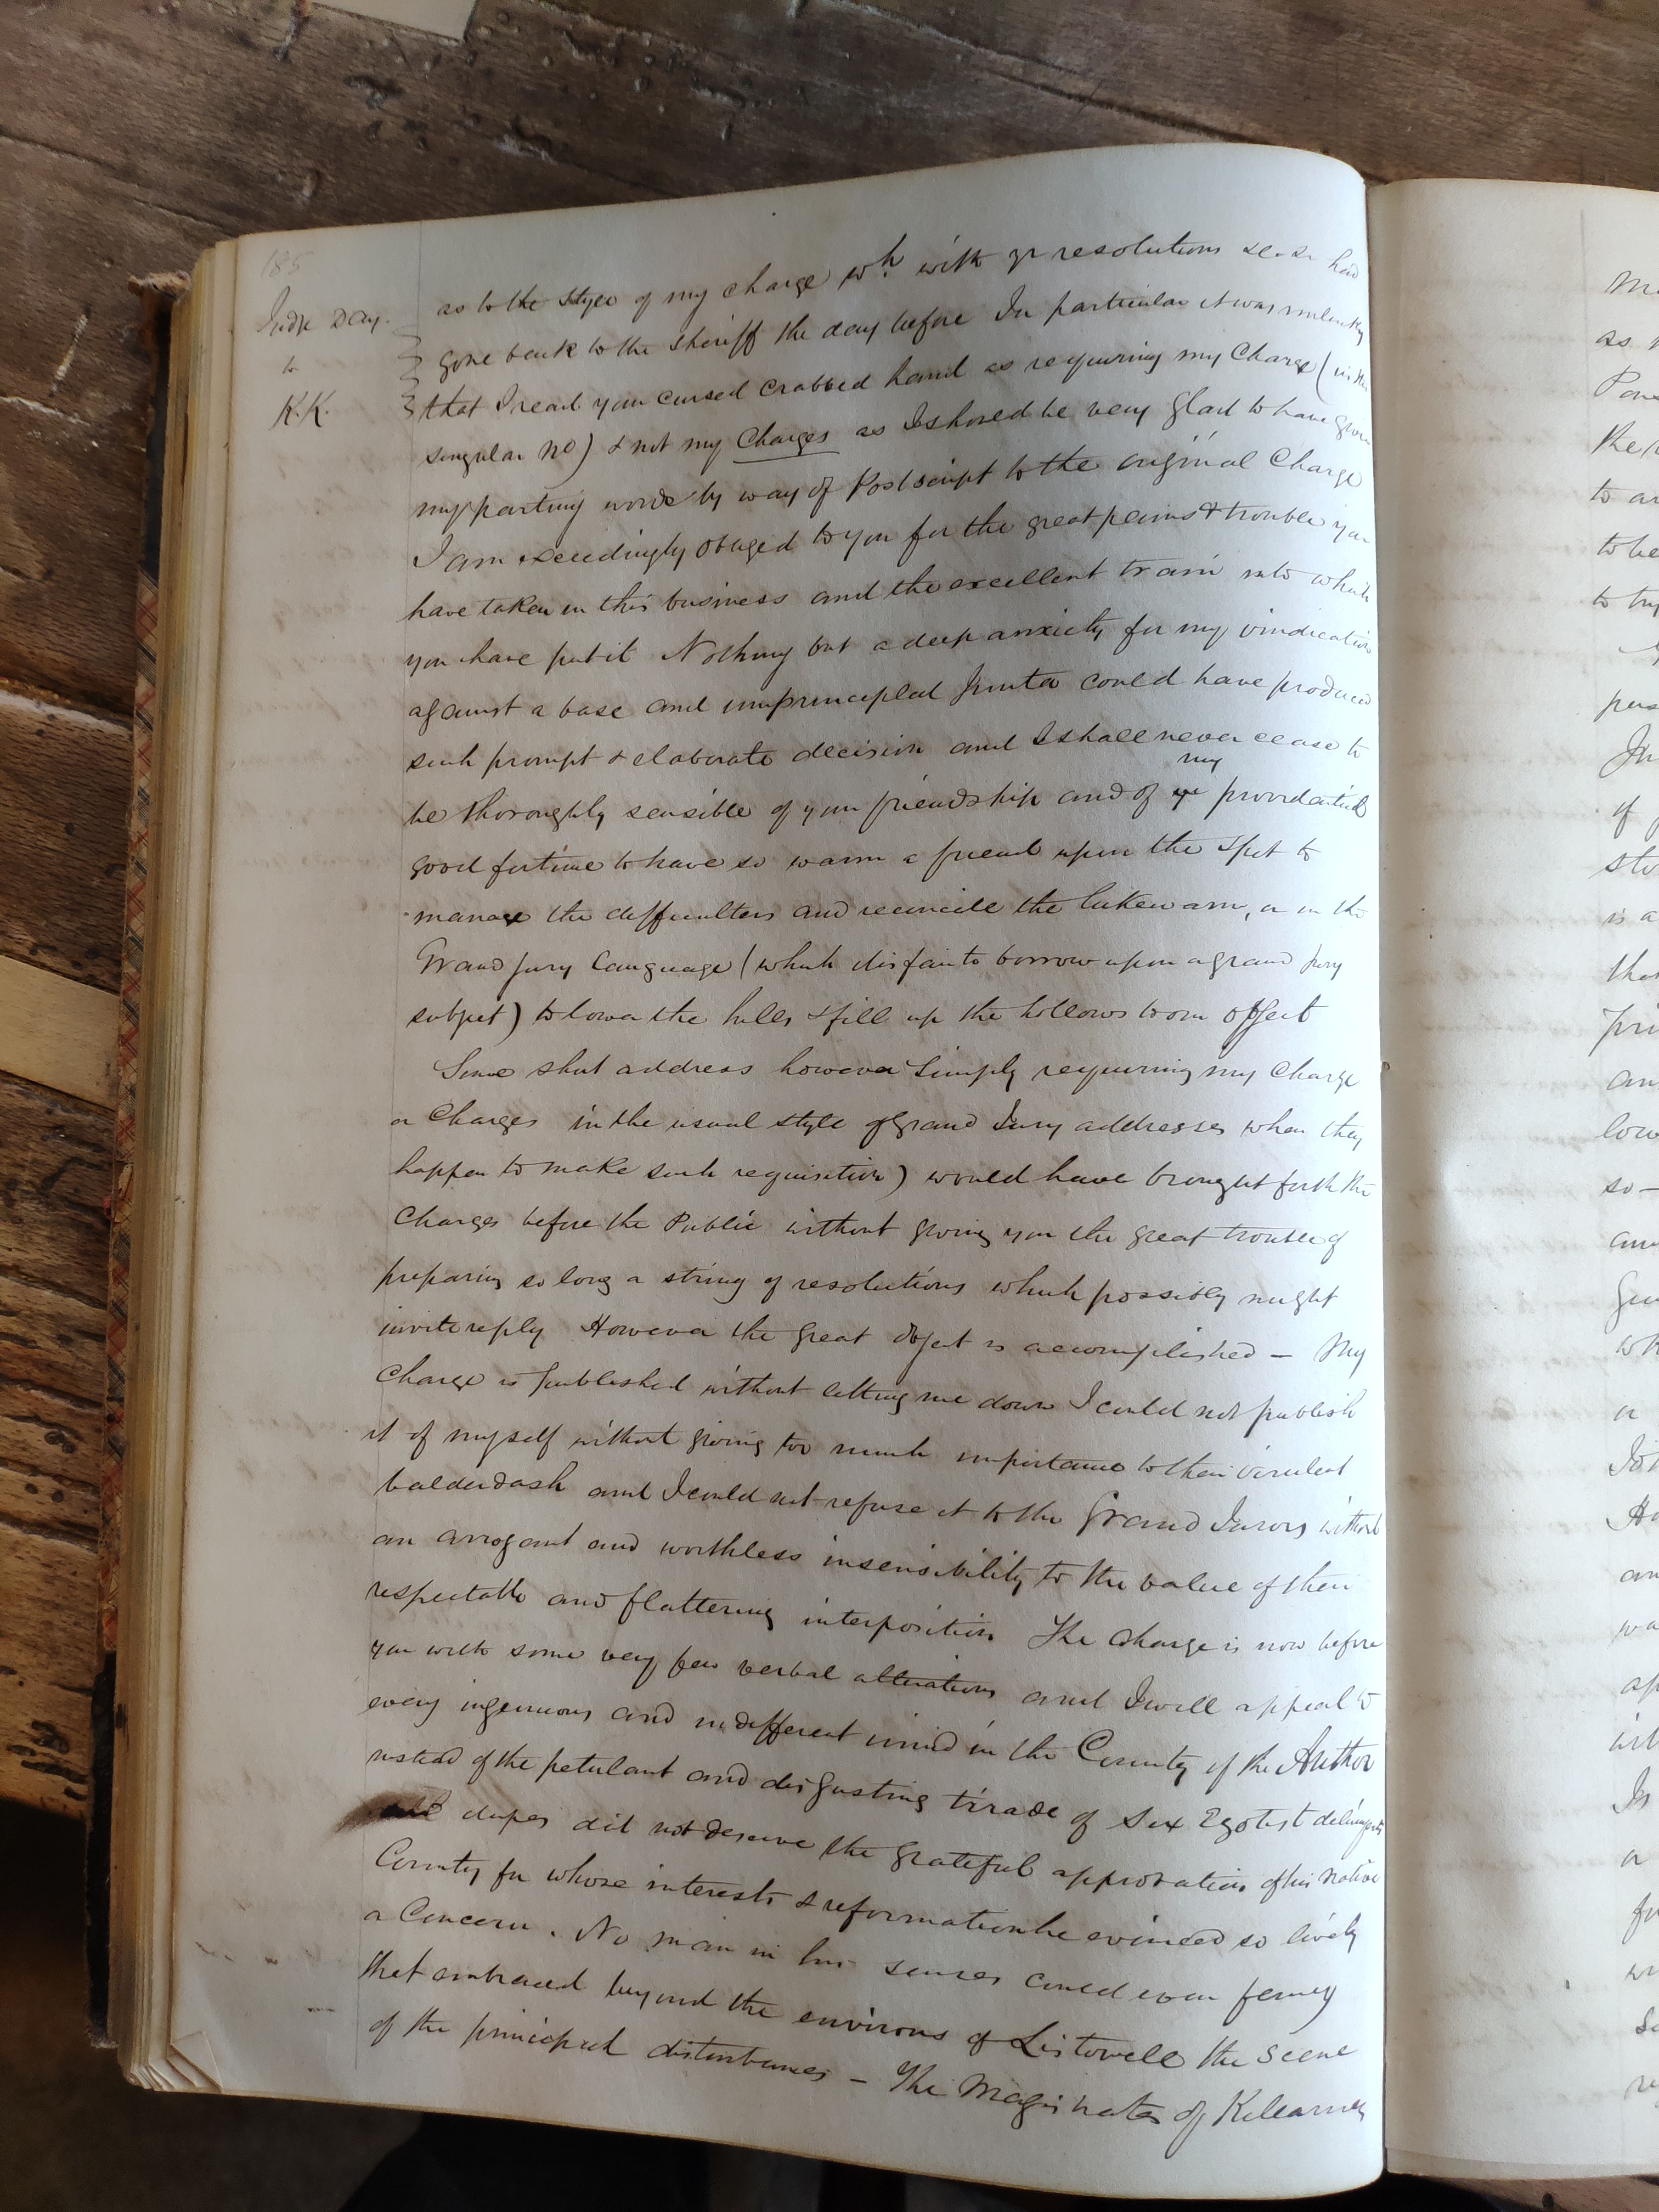 185
Judge Day.
to
K.K.
as to the style of my charge wh with yr resolutions &c &c had
gone back to the Sheriff the day before In particular it was
that I read your cursed crabbed hand as requiring my Charge (in the
singular No) & not my Charges as I should be very glad to have given
my parting words by way of Postscript to the original Charge
I am exceedingly obliged to you for the great pains & trouble you
have taken in this business and the excellent train into which
you have put it Nothing but a deep anxiety for my vindication
against a base and unprincipled Junta could have produced
such prompt & elaborate decision and I shall never cease to
be thoroughly sensible of your friendship and of my providential
good fortune to have so warm a friend upon the Spot to
manage the difficulties and reconcile the lukewarm, or in the
Grand Jury Language (which tis fair to borrow upon a grand Jury
subject) to lower the hills & fill up the hollows to our Object
short address however simply requiring my Charge
or Charges in the usual style of Grand Jury addresses when they
happen to make such requisition) would have brought forth the
Charges before the Public without giving you the great trouble of
preparing so long a string of resolutions which possibly might
invite reply However the great Object is accomplished — My
Charge is published without letting me down I could not publish
it of myself without giving too much importance to their virulent
balderdash and I could not refuse it to the Grand Jurors without
an arrogant and worthless insensibility to the value of their
respectable and flattering interposition The Charge is now before
you with some very few verbal alterations and I will appeal to
every ingenuous and indifferent mind in the County if the Author
instead of the petulant and disgusting tirade of Six Egotist delinquents
dupes did not deserve the grateful approbation of his native
County for whose interests & reformation he evinced so lively
a Concern. No man in his senses could even fancy
that embraced beyond the environs of Listowell the Scene
of the principal disturbances — The Magistrates of Kilearney